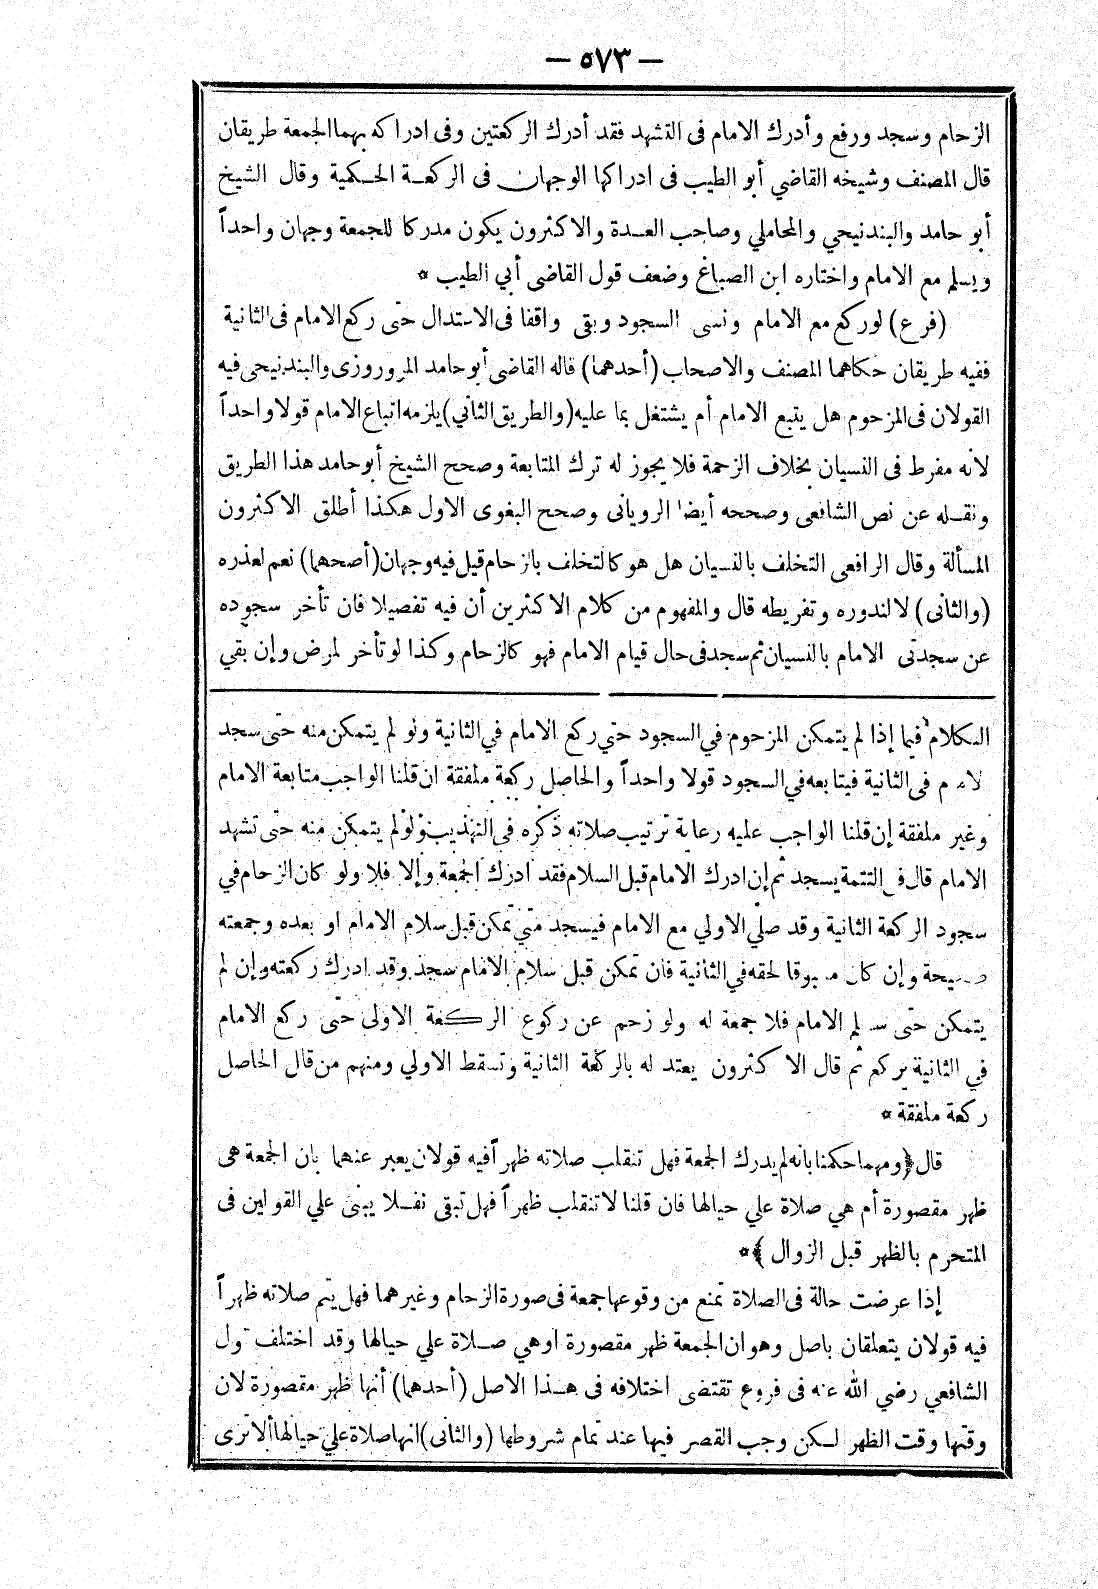 — ٥٧٣ —
الزحام وسجد ورفع وأدرك الامام فى التشهد فقد أدرك الركعتين وفى ادراكه بهما الجمعة طريقان
قال المصنف وشيخه القاضي أبو الطيب فى ادراكها الوجهان فى الركعة الحكمية وقال الشيخ
أبو حامد والبندنيجي والمحاملي وصاحب العدة والاكثرون يكون مدركا للجمعة وجهان واحداً
ويسلم مع الامام واختاره ابن الصباغ وضعف قول القاضى أبي الطيب *
(فرع) لو ركع مع الامام ونسى السجود وبقى واقفا فى الاستدال حتى ركع الامام فى الثانية
ففيه طريقان حكاهما المصنف والاصحاب (أحدهما) قاله القاضى أبو حامد المروروزى والبندنيجى فيه
القولان فى المزحوم هل يتبع الامام أم يشتغل بما عليه (والطريق الثاني) يلزمه اتباع الامام قولا واحداً
لانه مفرط فى النسيان بخلاف الزحمة فلا يجوز له ترك المتابعة وصحح الشيخ أبو حامد هذا الطريق
ونقله عن نص الشافعى وصححه أيضا الرويانى وصحح البغوى الاول هكذا أطلق الاكثرون
المسألة وقال الرافعى التخلف بالنسيان هل هو كالتخلف بالزحام قيل فيه وجهان (أصحهما) نعم لعذره
(والثانى) لا لندوره وتفريطه قال والمفهوم من كلام الاكثرين أن فيه تفصيلا فان تأخر سجوده
عن سجدتى الامام بالنسيان ثم سجد فى حال قيام الامام فهو كالزحام وكذا لو تأخر لمرض وإن بقي
الكلام فيما إذا لم يتمكن المزحوم في السجود حتي ركع الامام في الثانية ولو لم يتمكن منه حتى سجد
الامام فى الثانية فيتابعه في السجود قولا واحداً والحاصل ركعة ملفقة ان قلنا الواجب متابعة الامام
وغير ملفقة إن قلنا الواجب عليه رعاية ترتيب صلاته ذكره في التهذيب ولو لم يتمكن منه حتى تشهد
الامام قال فى التتمة يسجد ثم إن ادرك الامام قبل السلام فقد ادرك الجمعة وإلا فلا ولو كان الزحام في
سجود الركعة الثانية وقد صلي الاولي مع الامام فيسجد متي تمكن قبل سلام الامام او بعده وجمعته
صحيحة وإن كان مسبوقا لحقه في الثانية فان تمكن قبل سلام الامام سجد وقد ادرك ركعته وإن لم
يتمكن حتى سلم الامام فلا جمعة له ولو زحم عن ركوع الركعة الاولى حتى ركع الامام
في الثانية يركع ثم قال الاكثرون يعتد له بالركعة الثانية وتسقط الاولي ومنهم من قال الحاصل
ركعة ملفقة *
قال ﴿ومهما حكمنا بانه لم يدرك الجمعة فهل تنقلب صلاته ظهراً فيه قولان يعبر عنهما بان الجمعة هى
ظهر مقصورة أم هي صلاة علي حيالها فان قلنا لا تنقلب ظهراً فهل تبقى نفلا يبنى علي القولين فى
المتحرم بالظهر قبل الزوال ﴾*
إذا عرضت حالة فى الصلاة تمنع من وقوعها جمعة فى صورة الزحام وغيرهما فهل يتم صلاته ظهراً
فيه قولان يتعلقان باصل وهو ان الجمعة ظهر مقصورة اوهي صلاة علي حيالها وقد اختلف قول
الشافعي رضي الله عنه فى فروع تقتضى اختلافه فى هذا الاصل (أحدهما) أنها ظهر مقصورة لان
وقتها وقت الظهر لكن وجب القصر فيها عند تمام شروطها (والثانى) انها صلاة علي حيالها ألا ترى